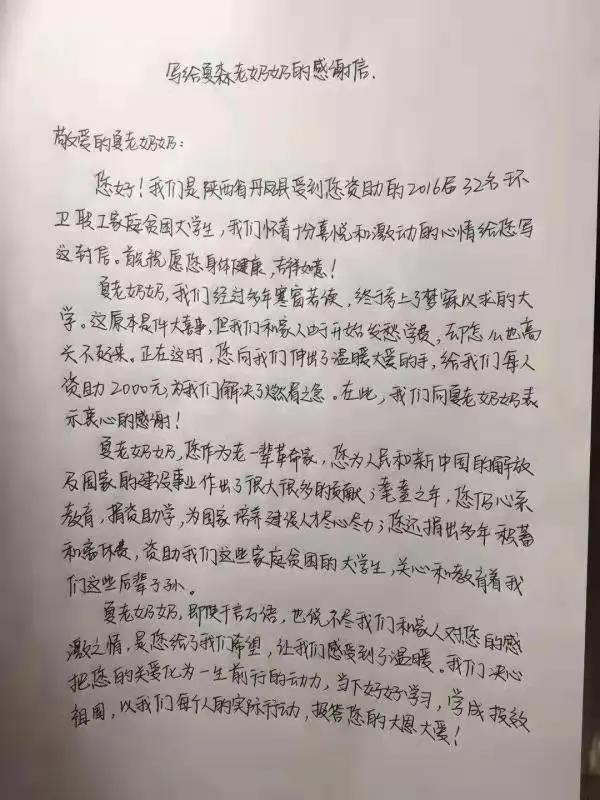 写给夏森老奶奶的感谢信.
敬爱的夏老奶奶:
您好!我们是陕西省丹凤县受到您资助的2016届32名环
卫职工家庭贫困大学生,我们怀着十分喜悦和激动的心情给您写
这封信。首先祝愿您身体健康,吉祥如意!
夏老奶奶,我们经过多年寒窗苦读,终于考上了梦寐以求的大
学。这原本是件大喜事,但我们和家人由于开始发愁学费,却怎么也高
兴不起来。正在这时,您向我们伸出了温暖大爱的手,给我们每人
资助2000元,为我们解决了燃眉之急。在此,我们向夏老奶奶表
示衷心的感谢!
夏老奶奶,您作为老一辈革命家,您为人民和新中国的解放
及国家的建设事业作出了很大很多的贡献;耄耋之年,您仍心系
教育,捐资助学,为国家培养建设人才尽心尽力;您还捐出多年积蓄
和离休费,资助我们这些家庭贫困的大学生,关心和教育着我
们这些后辈子孙。
夏老奶奶,即使千言万语,也说不尽我们和家人对您的感
激之情,是您给了我们希望,让我们感受到了温暖。我们决心
把您的关爱化为一生前行的动力,当下好好学习,学成报效
祖国,以我们每个人的实际行动,报答您的大恩大爱!